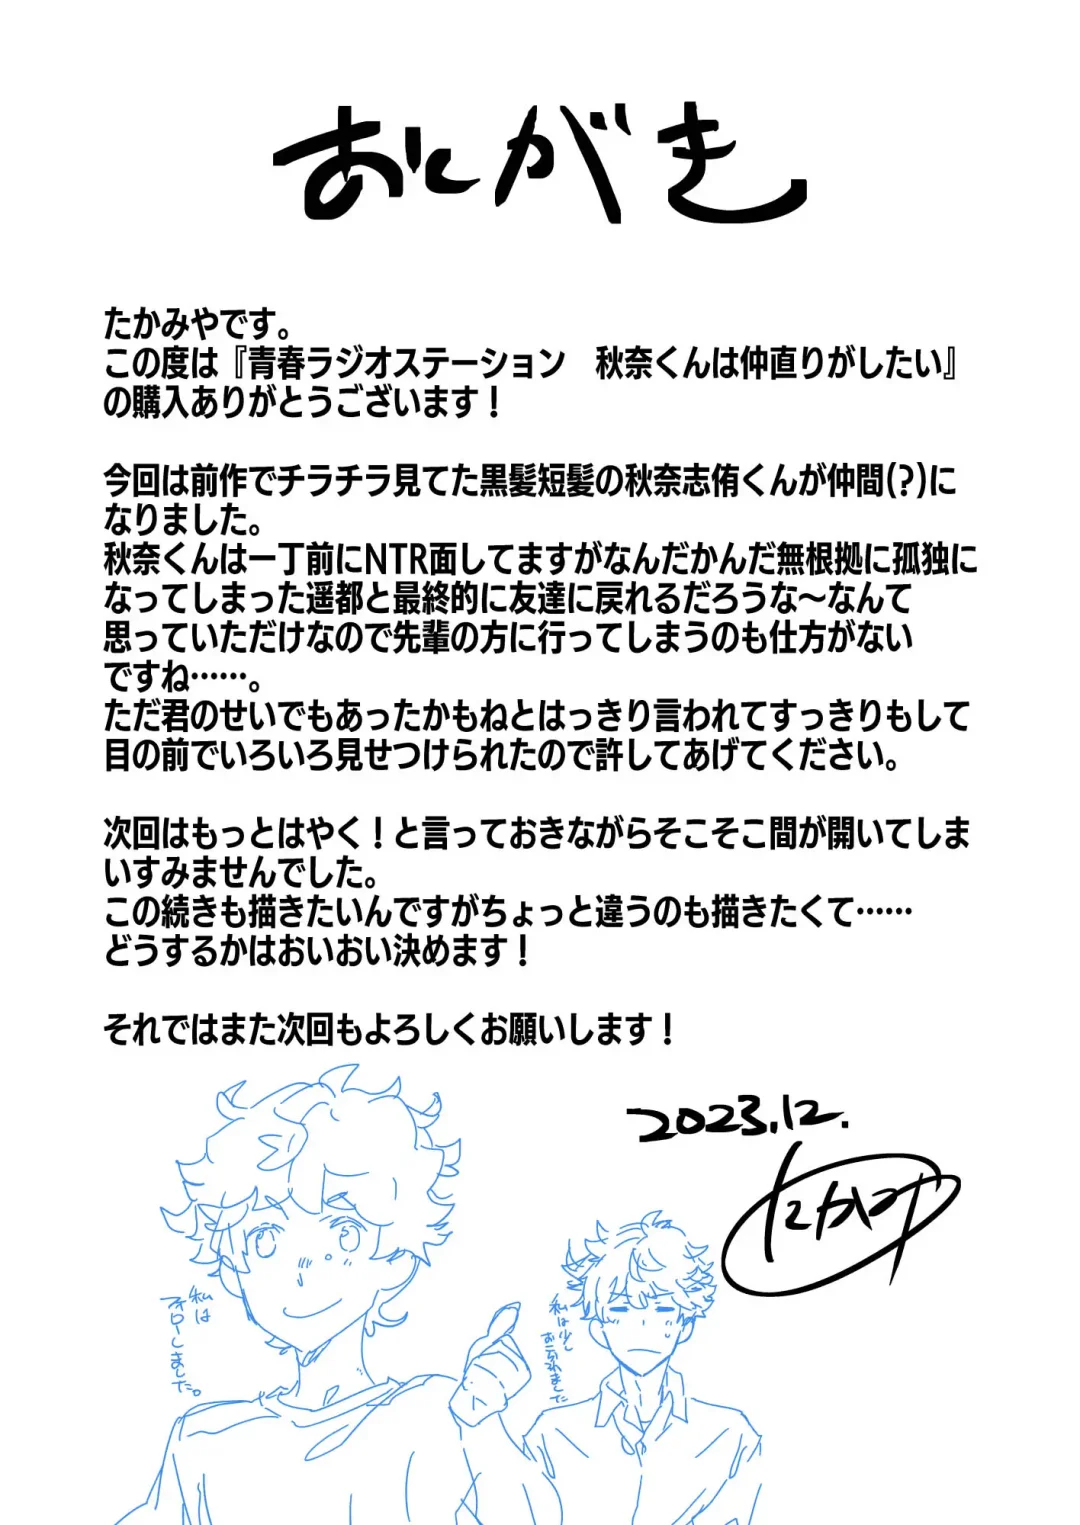 あとがき
たかみやです。
この度は『青春ラジオステーション　秋奈くんは仲直りがしたい』
の購入ありがとうございます！
今回は前作でチラチラ見てた黒髪短髪の秋奈志侑くんが仲間(?)に
なりました。
秋奈くんは一丁前にNTR面してますがなんだかんだ無根拠に孤独に
なってしまった遥都と最終的に友達に戻れるだろうな～なんて
思っていただけなので先輩の方に行ってしまうのも仕方がない
ですね……。
ただ君のせいでもあったかもねとはっきり言われてすっきりもして
目の前でいろいろ見せつけられたので許してあげてください。
次回はもっとはやく！と言っておきながらそこそこ間が開いてしま
いすみませんでした。
この続きも描きたいんですがちょっと違うのも描きたくて……
どうするかはおいおい決めます！
それではまた次回もよろしくお願いします！
2023.12.
たかみや
私は
フォローしました。
私は少し
おこられました